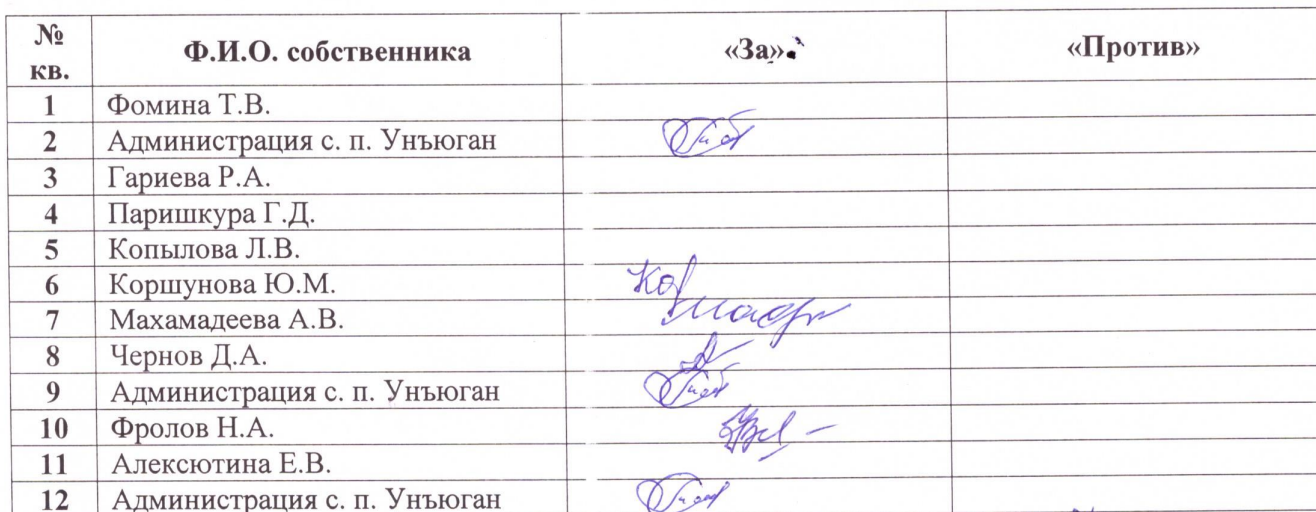 № кв. Ф.И.О. собственника «За» «Против»
1 Фомина Т.В.
2 Администрация с. п. Унъюган
3 Гариева Р.А.
4 Паришкура Г.Д.
5 Копылова Л.В.
6 Коршунова Ю.М.
7 Махамадеева А.В.
8 Чернов Д.А.
9 Администрация с. п. Унъюган
10 Фролов Н.А.
11 Алексютина Е.В.
12 Администрация с. п. Унъюган